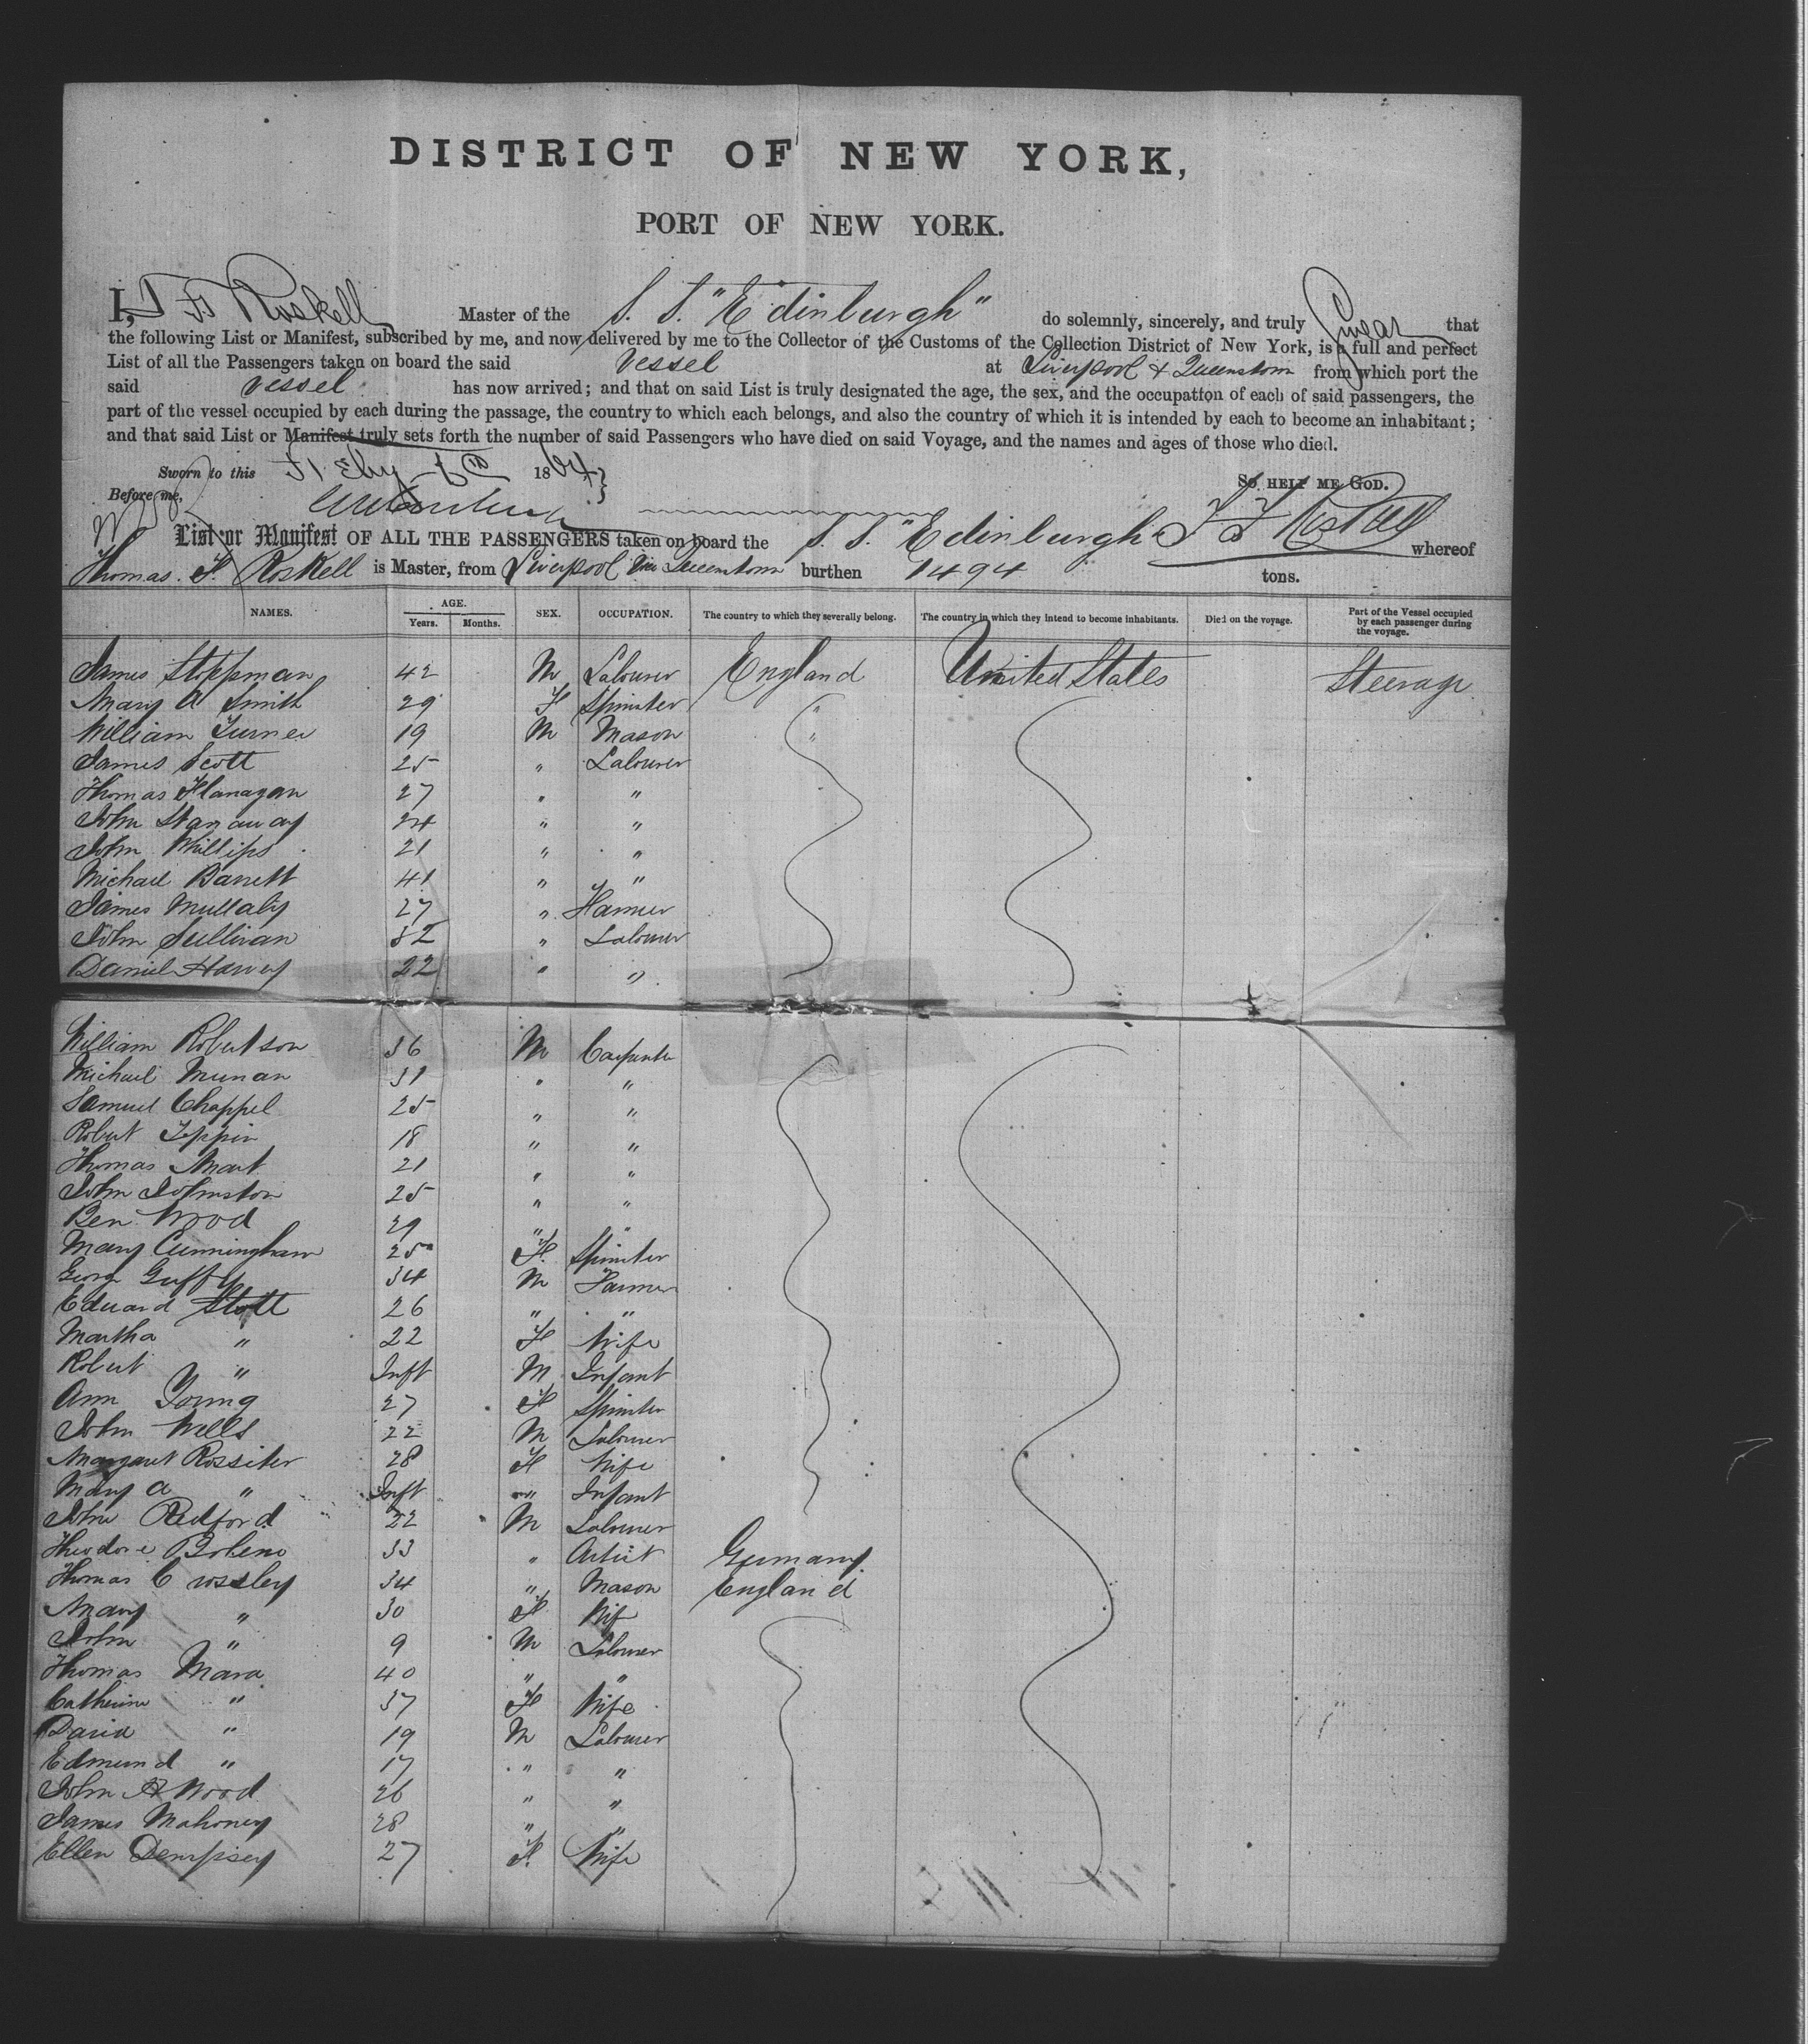 DISTRICT OF NEW YORK,
PORT OF NEW YORK.
I, T F Roskell Master of the S. S. "Edinburgh" do solemnly, sincerely, and truly Swear that
the following List or Manifest, subscribed by me, and now delivered by me to the Collector of the Customs of the Collection District of New York, is a full and perfect
List of all the Passengers taken on board the said Vessel at Liverpool & Queenstown from which port the
said Vessel has now arrived; and that on said List is truly designated the age, the sex, and the occupation of each of said passengers, the
part of the vessel occupied by each during the passage, the country to which each belongs, and also the country of which it is intended by each to become an inhabitant;
and that said List or Manifest truly sets forth the number of said Passengers who have died on said Voyage, and the names and ages of those who died.
Sworn to this 1864 So HELP ME GOD.
Before me,
List or Manifest OF ALL THE PASSENGERS taken on board the S. S. "Edinburgh" T F Roskell whereof
Thomas. F. Roskell is Master, from Liverpool via Queenstown burthen 1494 tons.
NAMES. AGE. Years. Months. SEX. OCCUPATION. The country to which they severally belong. The country in which they intend to become inhabitants. Died on the voyage. Part of the Vessel occupied by each passenger during the voyage.
James Stoppman 42 M Labourer England United States Steerage
Mary A Smith 29 F Spinster "
William Turner 19 M Mason "
James Scott 25 " Labourer
Thomas Flanagan 27 " "
John Stanaway 24 " "
John Phillips 21 " "
Michael Barrett 41 " "
James Mullaly 27 " Farmer
John Sullivan 32 " Labourer
Daniel Harvey 22 " "
William Robertson 36 M Carpenter
Michael Munan 31 " "
Samuel Chappel 25 " "
Robert Teppin 18 " "
Thomas Mart 21 " "
John Johnston 25 " "
Ben Wood 29 " "
Mary Cunningham 25 F Spinster
George Guffy 34 M Farmer
Edward Stott 26 " "
Martha " 22 F Wife
Robert " Inft M Infant
Ann Young 27 F Spinster
John Wells 22 M Labourer
Margaret Rossiter 28 F Wife
Mary A " Inft " Infant
John Redford 22 M Labourer
Theodore Boleno 33 " Artist Germany
Thomas Crossley 34 " Mason England
Mary " 30 F Wif
John " 9 M Labourer
Thomas Mara 40 " "
Catherine " 37 F Wife
David " 19 M Labourer
Edmund " 17 " "
John A Wood 26 " "
James Mahoney 28 " "
Ellen Dempsey 27 F. Wife